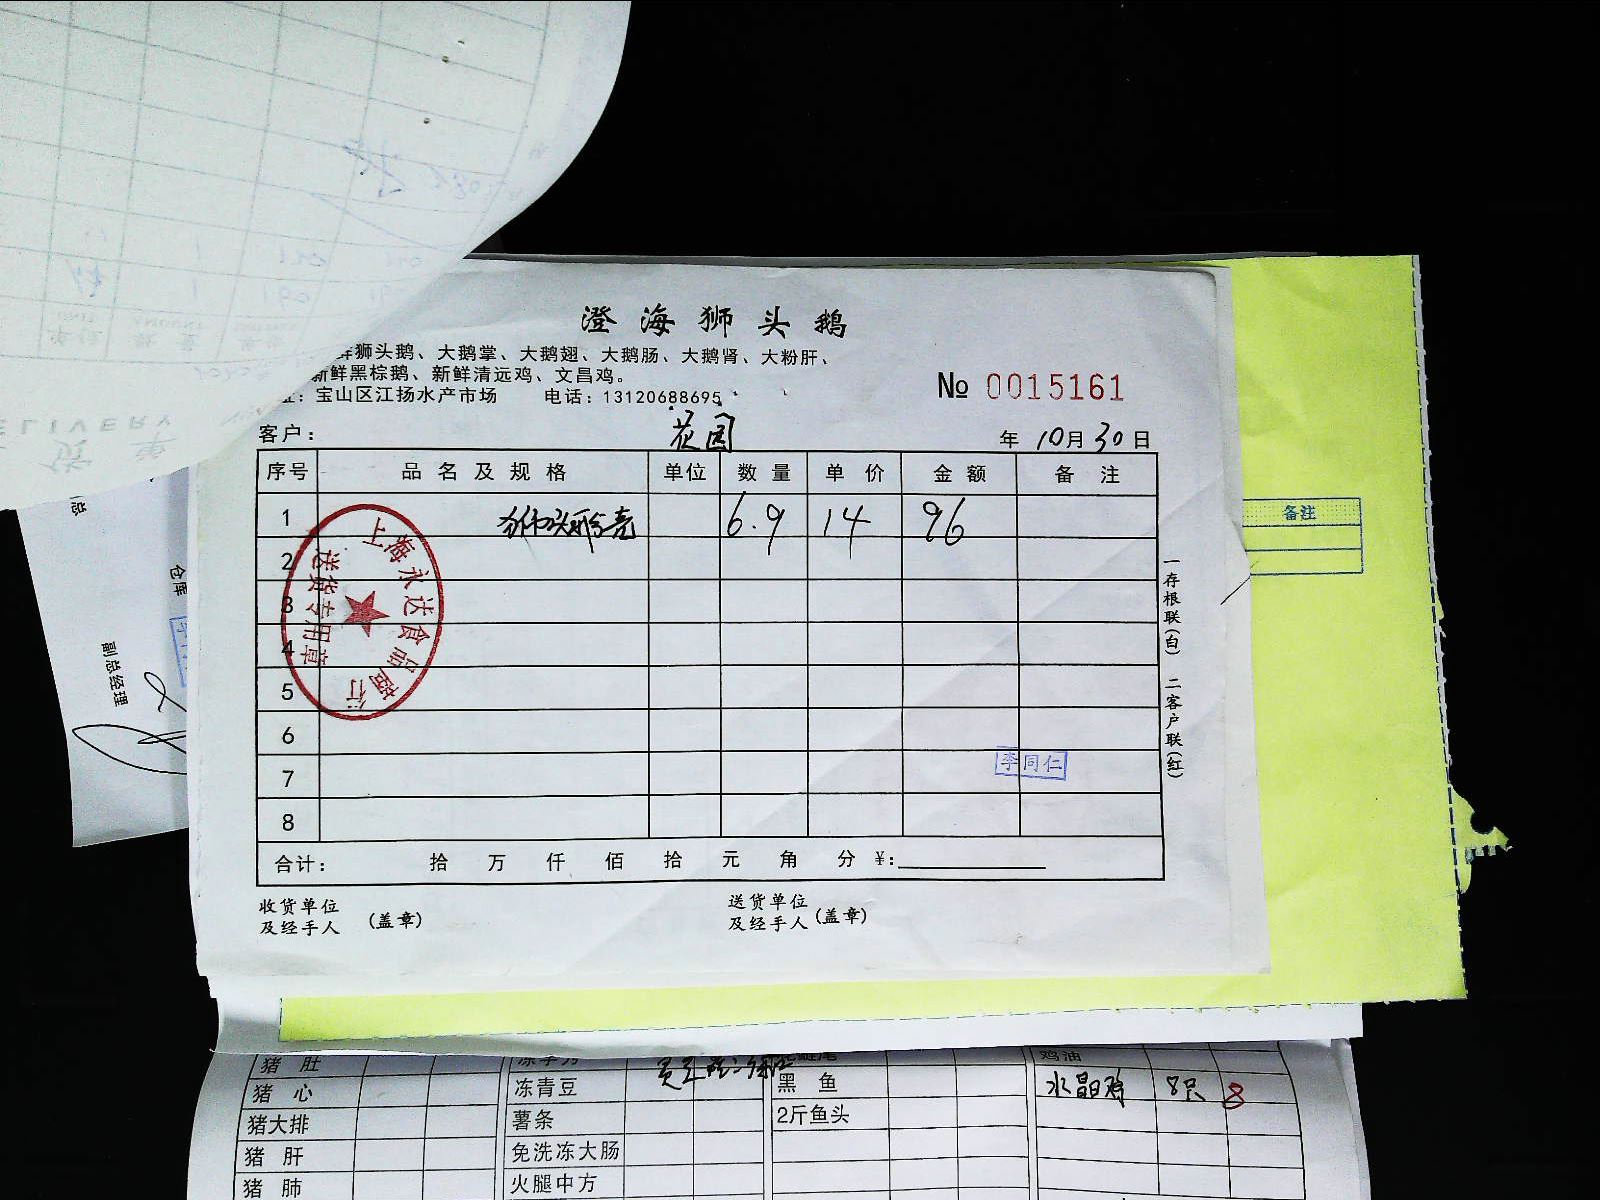 澄海狮头鹅
鲜狮头鹅、大鹅掌、大鹅翅、大鹅肠、大鹅肾、大粉肝、
新鲜黑棕鹅、新鲜清远鸡、文昌鸡。
宝山区江扬水产市场 电话：13120688695
№ 0015161
客户： 花园 年 10月 30日
序号 品名及规格 单位 数量 单价 金额 备注
1 狮头 6.9 14 96
2
3
4
5
6
7
8
上海永达食品商行
送货专用章
李同仁
合计： 拾 万 仟 佰 拾 元 角 分 ¥:
收货单位
及经手人 (盖章)
送货单位
及经手人 (盖章)
一存根联(白) 二客户联(红)
备注
仓库
副总经理
货单
猪肚
猪心 冻青豆 黑鱼 水晶鸡 8只 8
猪大排 薯条 2斤鱼头
猪肝 免洗冻大肠
猪肺 火腿中方
鸡油